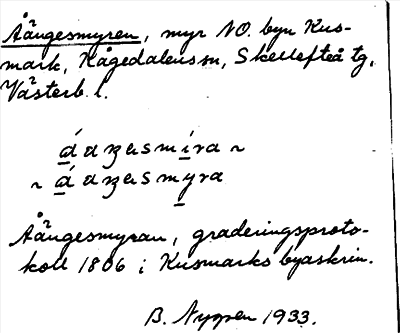 Åängesmyren, myr NO. byn Kus-
mark, Kågedalens sn, Skellefteå tg,
Västerb. l.
Åängesmyran, graderingsproto-
koll 1806 i Kusmarks byaskrin.
B. Nygren 1933.